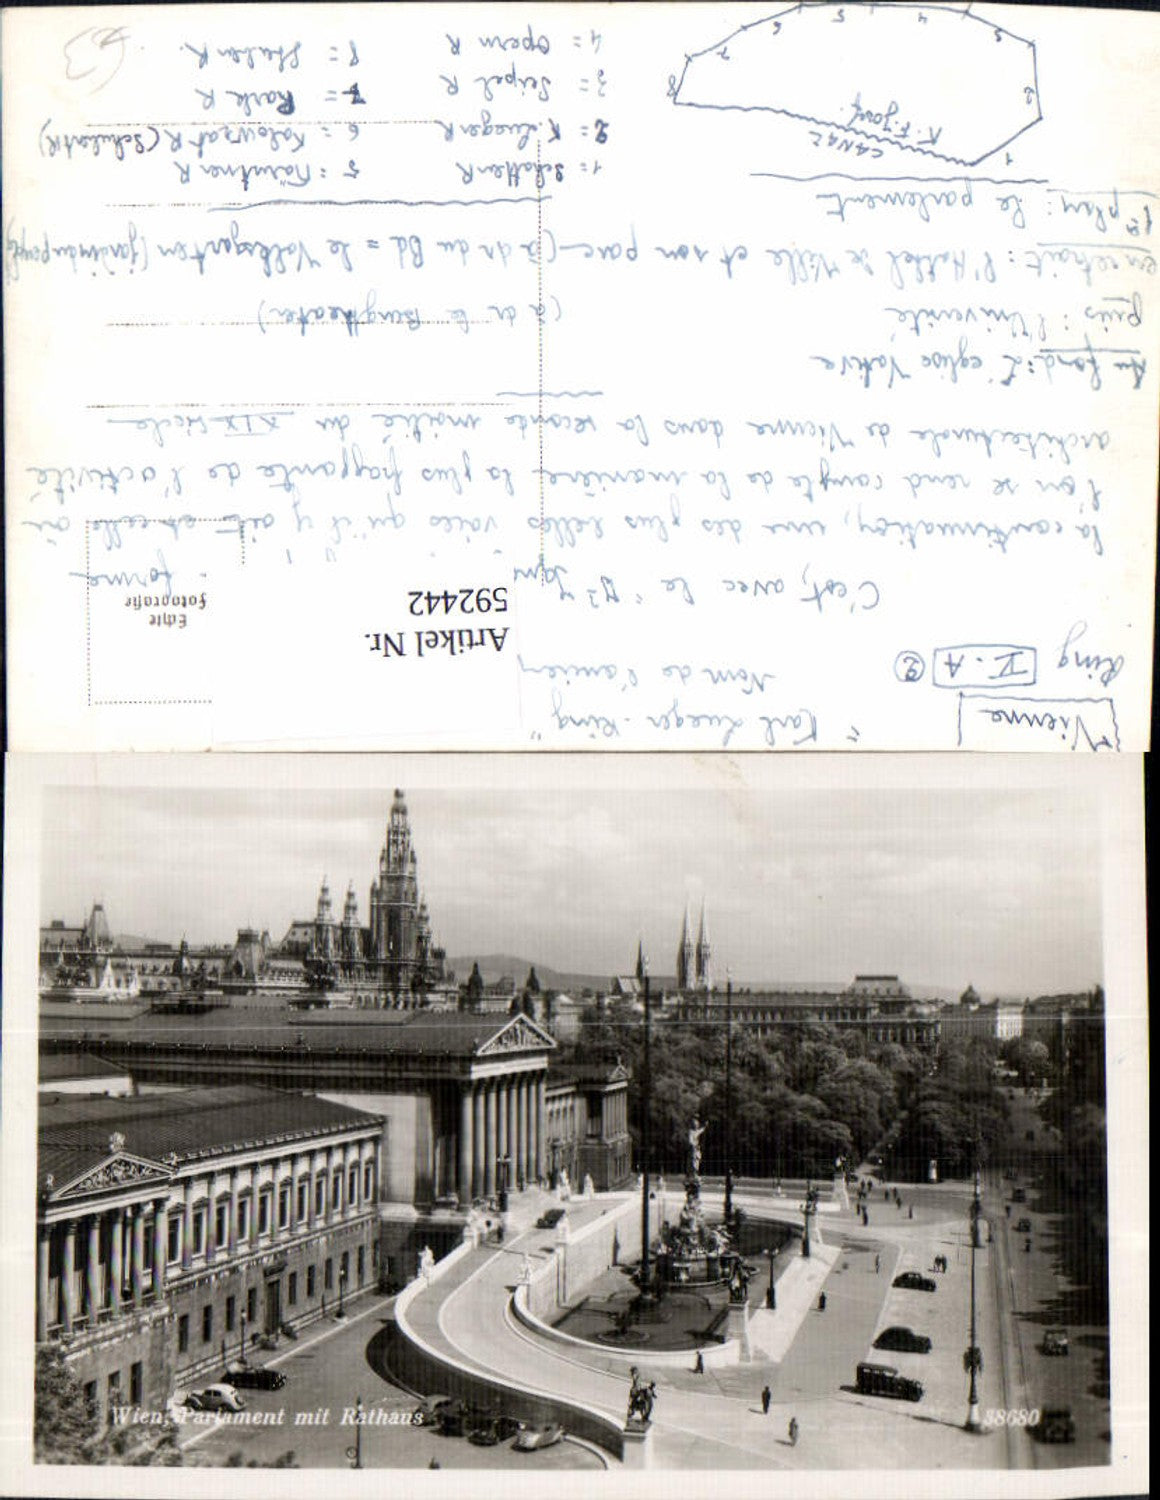 Vienne
Ring V. A 2
"Karl Lueger-Ring"
Nom de l'ancien
Artikel Nr.
592442
Echte
Fotografie
C'est, avec le forme
la continuation, une des plus belles voies qu'il y ait et celle où
l'on se rend compte de la manière la plus frappante de l'activité
architecturale de Vienne dans la seconde moitié du XIXe siècle
Au fond: L'église Votive
puis: l'Université (à dr le Burgtheater)
en retrait: l'Hôtel de Ville et son parc (à dr du Bd = le Volksgarten (jardin du peuple)
1er plan: le parlement
1 = SchottenR
2 = K. LuegerR
3 = Seipel R
4 = Opern R
5 = Kärntner R
6 = Kolowrat R (Schubert R)
7 = Park R
8 = Stuben R.
1
2
3
4
5
6
7
8
CANAL
K. F. Josef
53
Wien, Parlament mit Rathaus
38680